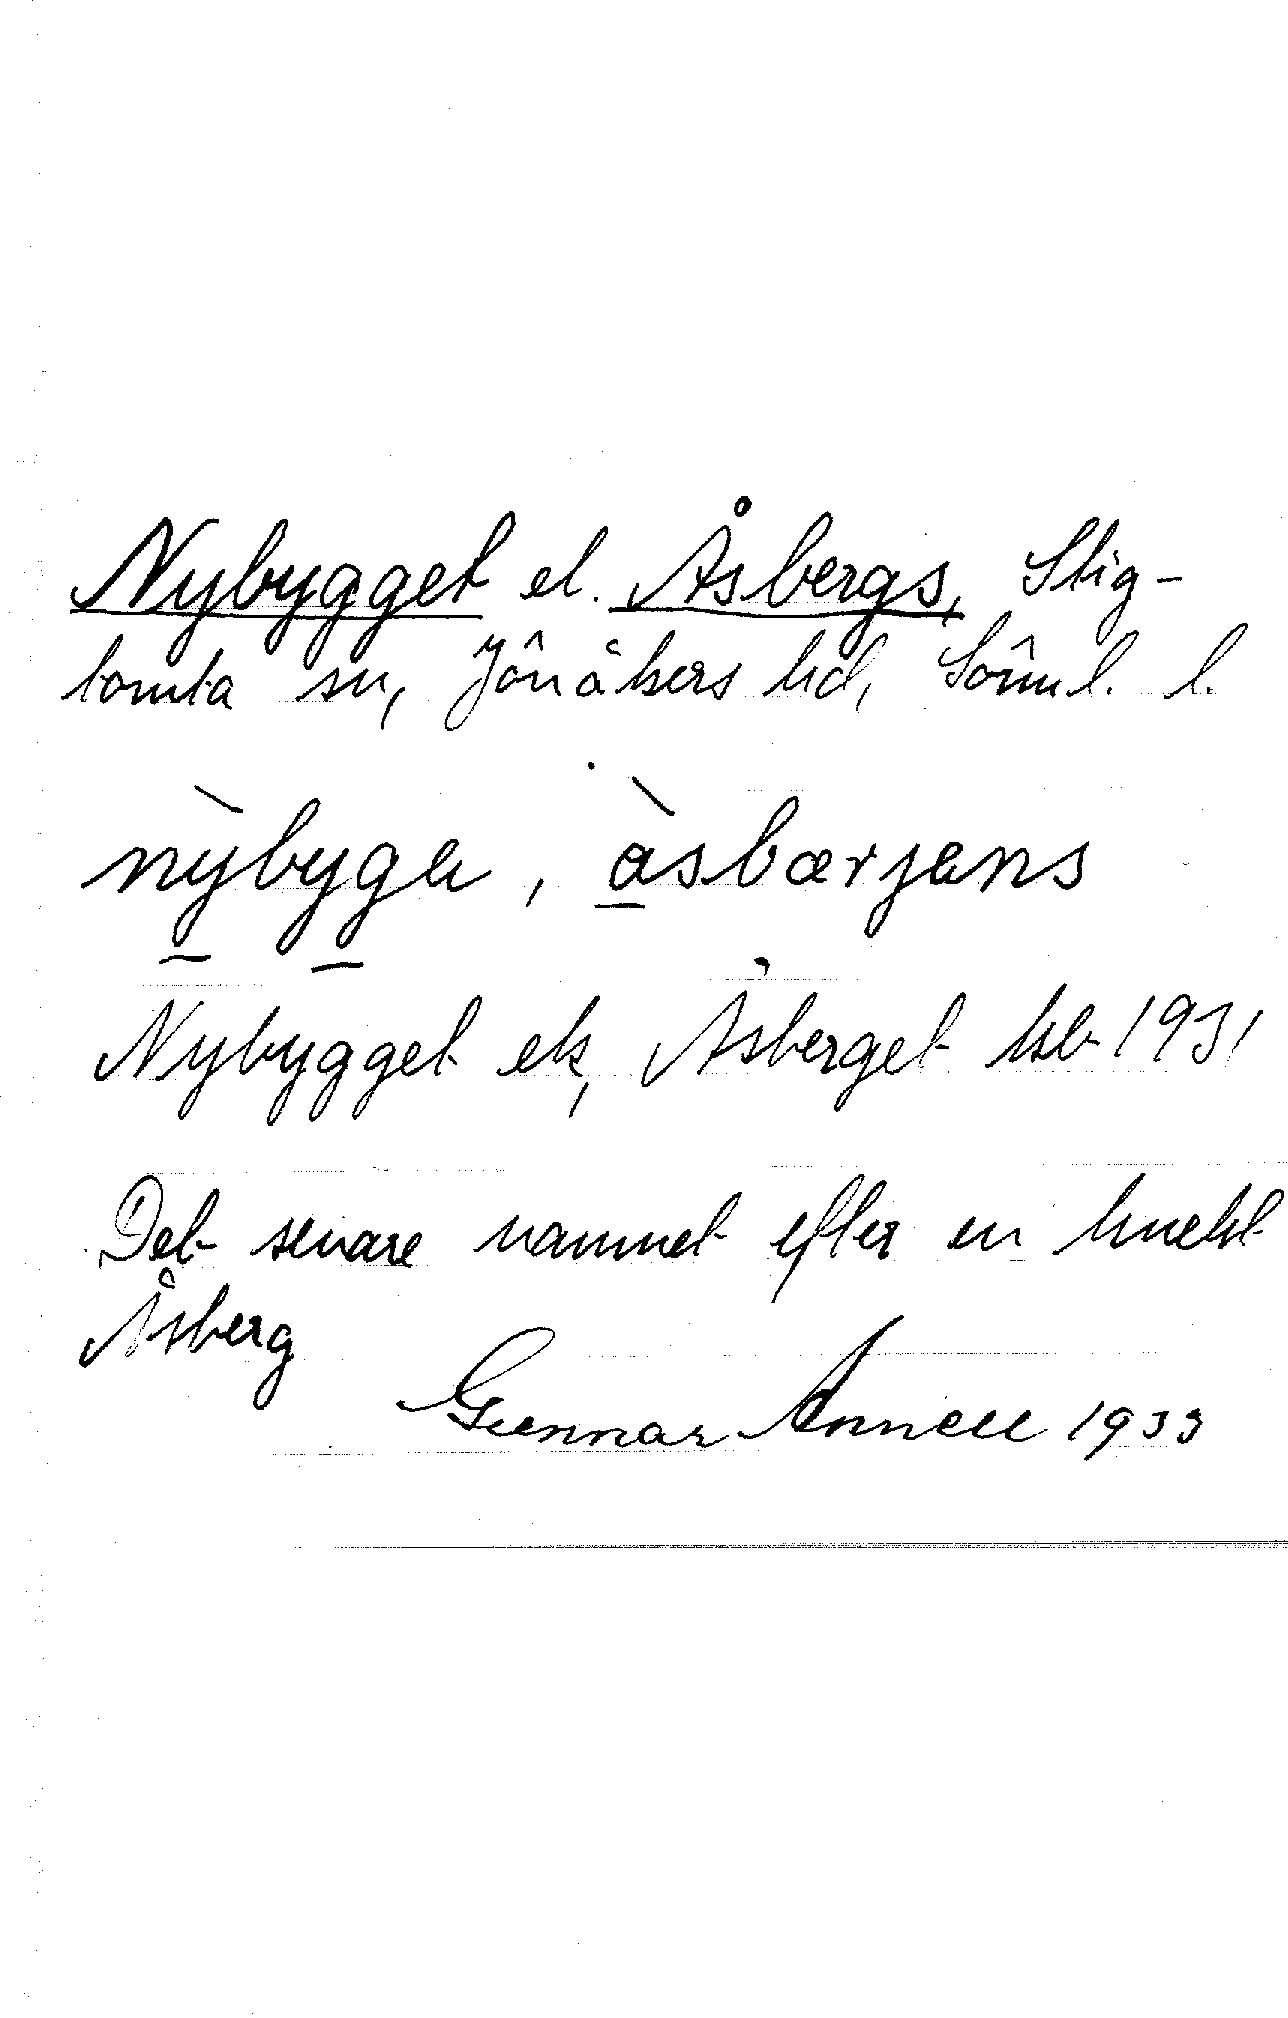 Nybygget el. Åsbergs, Stig-
tomta sn, Jönåkers hd, Sörml. l.
nỳbygə, àsbærjəns
Nybygget ek, Åsberget hsb 1931
Det senare namnet efter en knekt
Åsberg
Gunnar Annell 1933